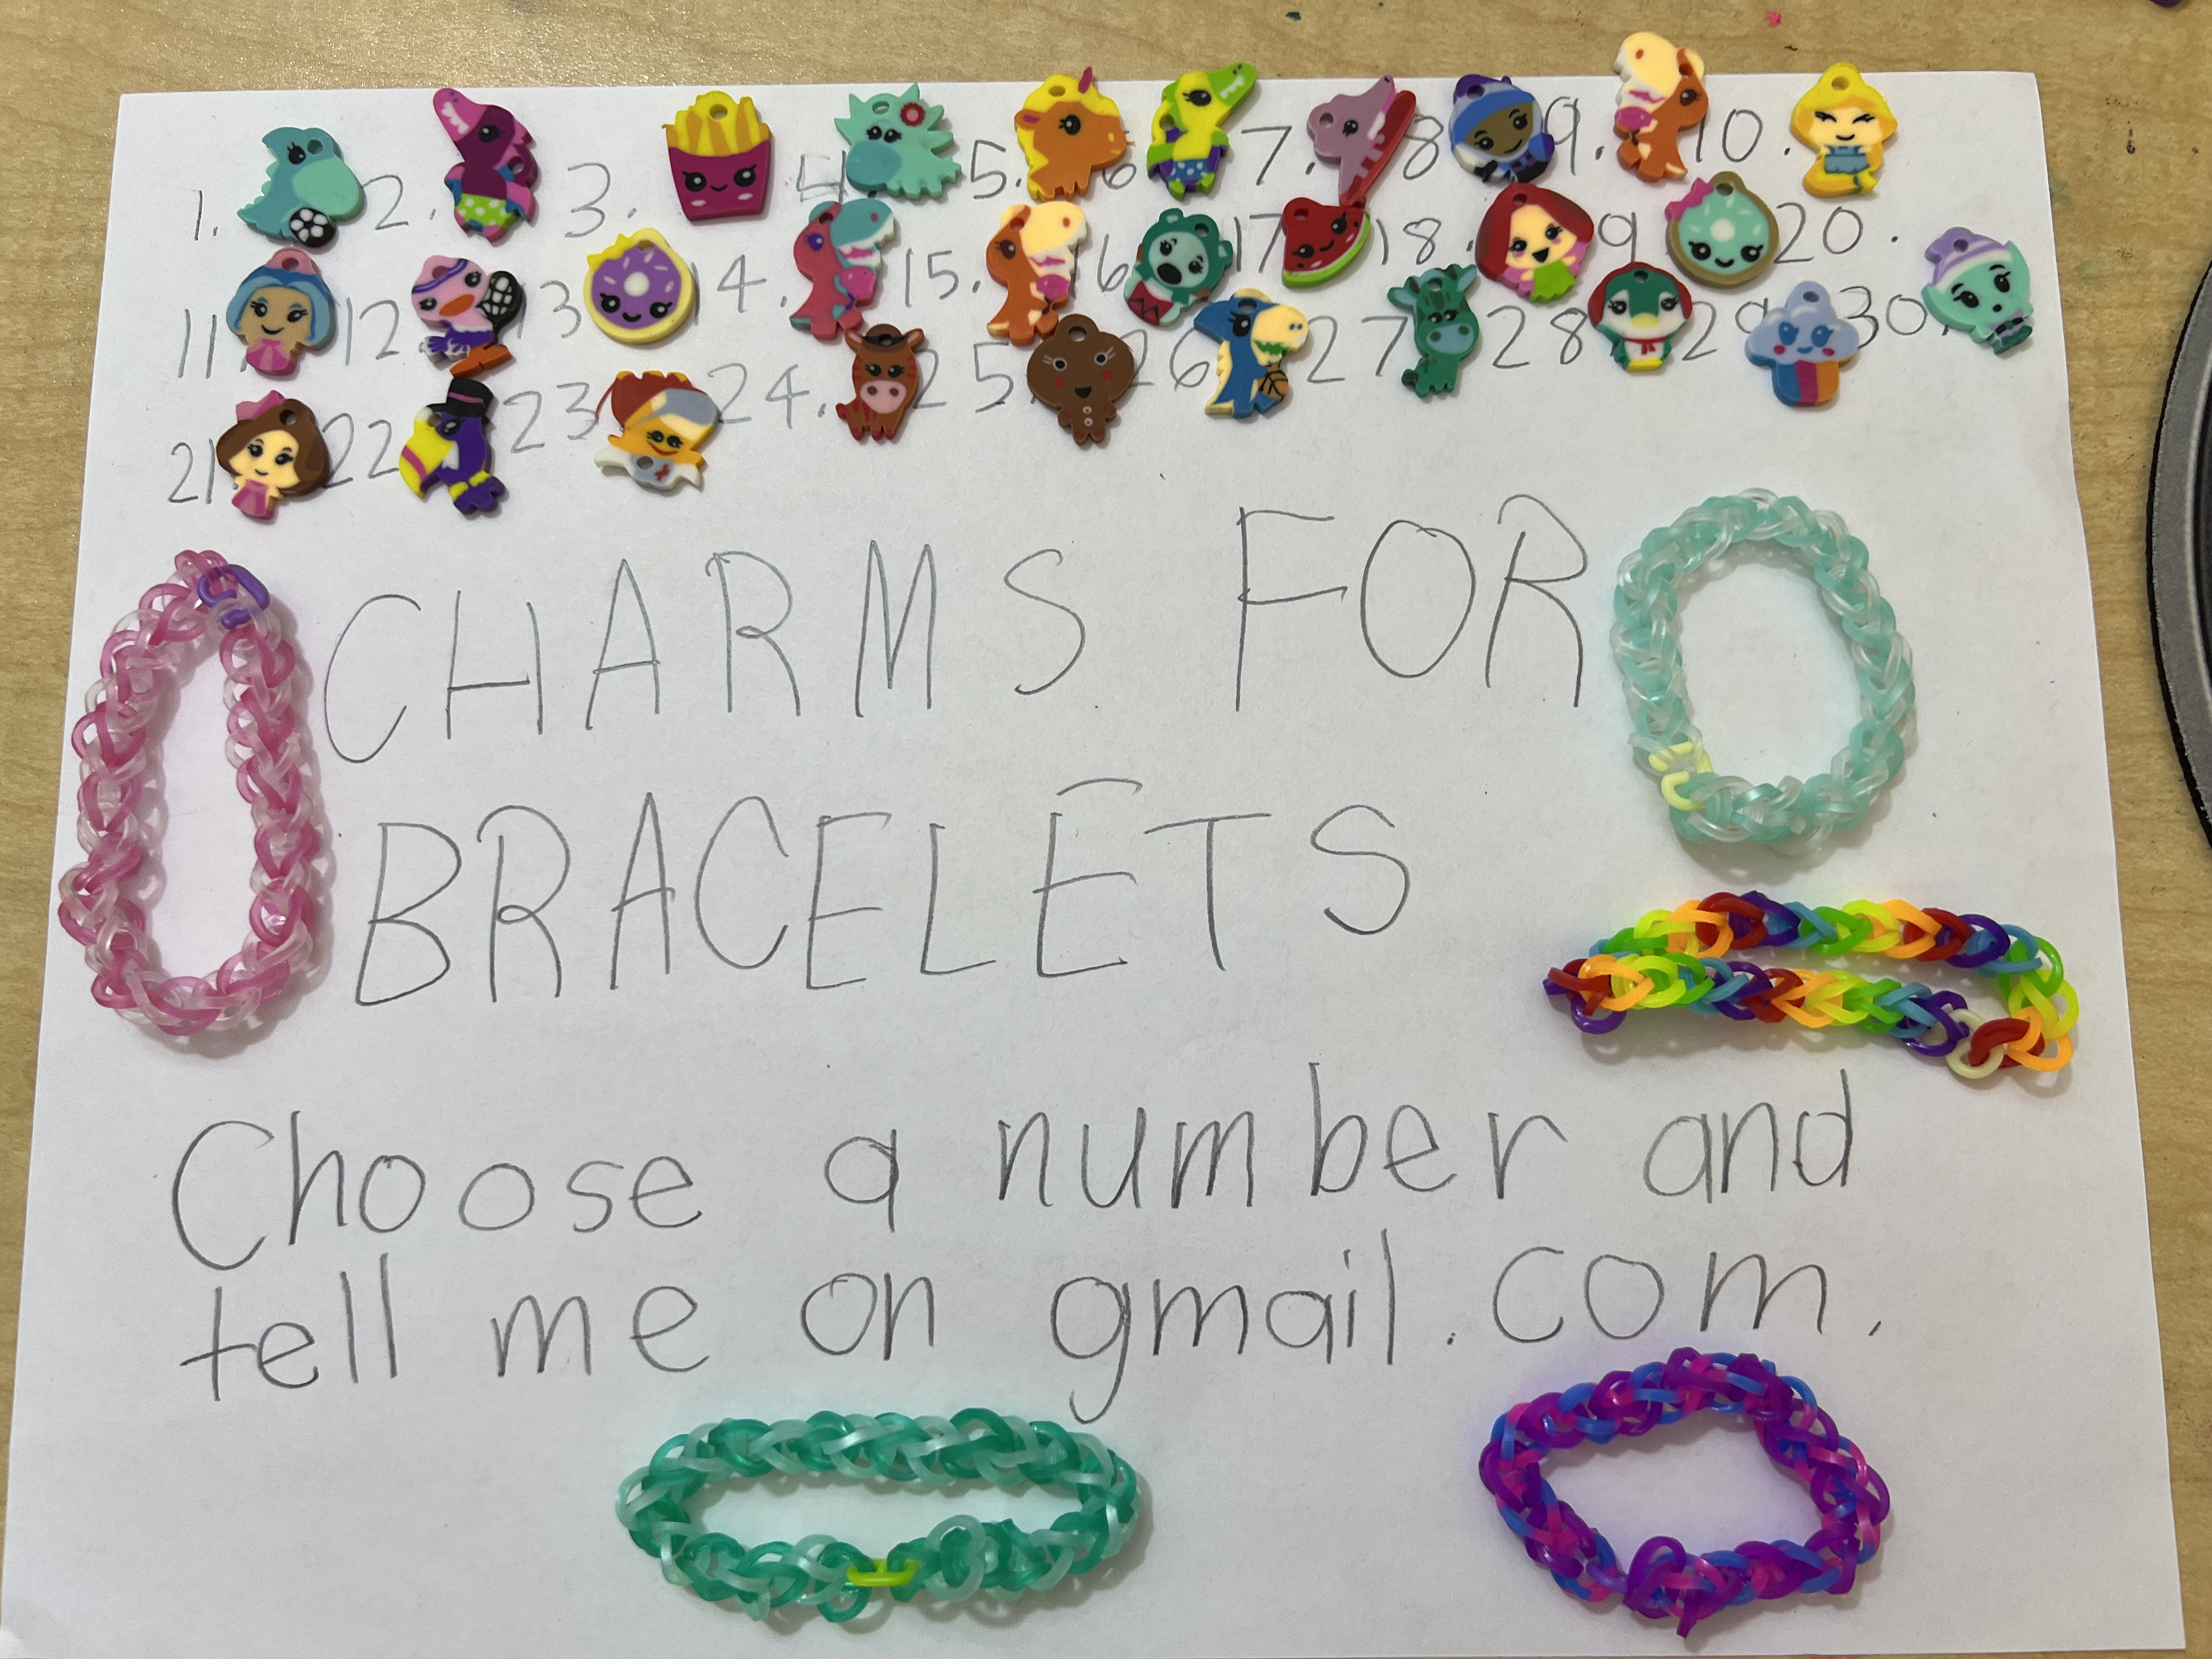 1. 2. 3. 4 5. 6 7. 8 9. 10.
11. 12. 13 14. 15. 16 17 18. 19 20.
21 22 23 24. 25 26 27 28 29 30
CHARMS FOR
BRACELETS
Choose a number and
tell me on gmail.com.